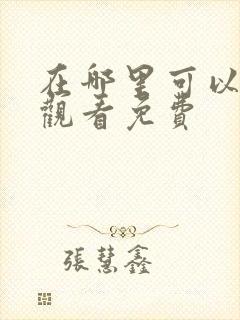 在哪里可以
觀看免費
張慧鑫